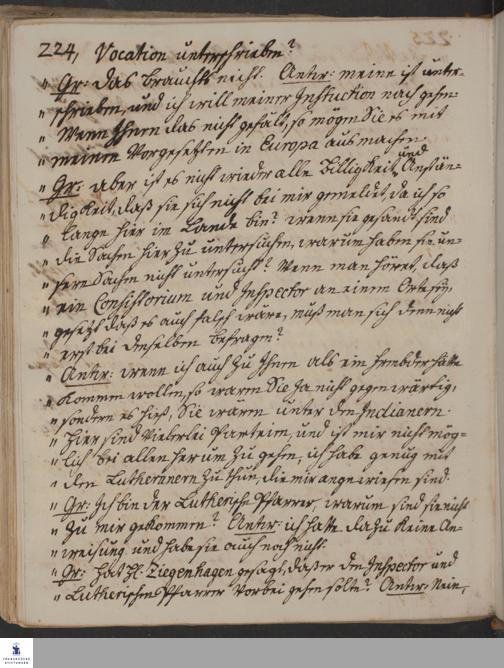 224, Vocation unterschrieben?
" Gr: das brauchts nicht. Antw: meine ist unter-
" schrieben, und ich will meiner Instruction nach gehen.
" Wenn Ihnen das nicht gefält, so mögen Sie es mit
" meinen Vorgesetzten in Europa ausmachen.
" Gr: aber ist es nicht wieder alle Billigkeit und Anstän-
" digkeit, daß sie sich nicht bei mir gemeldet, da ich so
" lange hier im Lande bin? wenn sie gesandt sind
" die Sachen hier zu untersuchen, warum haben sie un-
" sere Sachen nicht untersucht? Wenn man höret, daß
" ein Consistorium und Inspector an einem Orte sey,
" gesetzt daß es auch falsch wäre, muß man sich denn nicht
" erst bei denselben befragen?
" Antw: wenn ich auch zu Ihnen als ein frembder hätte
" kommen wollen, so waren Sie ja nicht gegenwärtig,
" sondern es hieß, Sie waren unter den Indianern.
" Hier sind vielerlei Parteien, und ist mir nicht mög-
" lich bei allen herum zu gehen, ich habe genug mit
" den Lutheranern zu thun, die mir angewiesen sind.
" Gr: Ich bin der Lutherische Pfarrer, warum sind sie nicht
" zu mir gekommen? Antw: ich hatte dazu keine An-
" weisung und habe sie auch noch nicht.
" Gr: hat H. Ziegenhagen gesagt, daß er den Inspector und
" Lutherischen Pfarrer vorbei gehen solte? Antw: Nein,
FRANCKESCHE
STIFTUNGEN